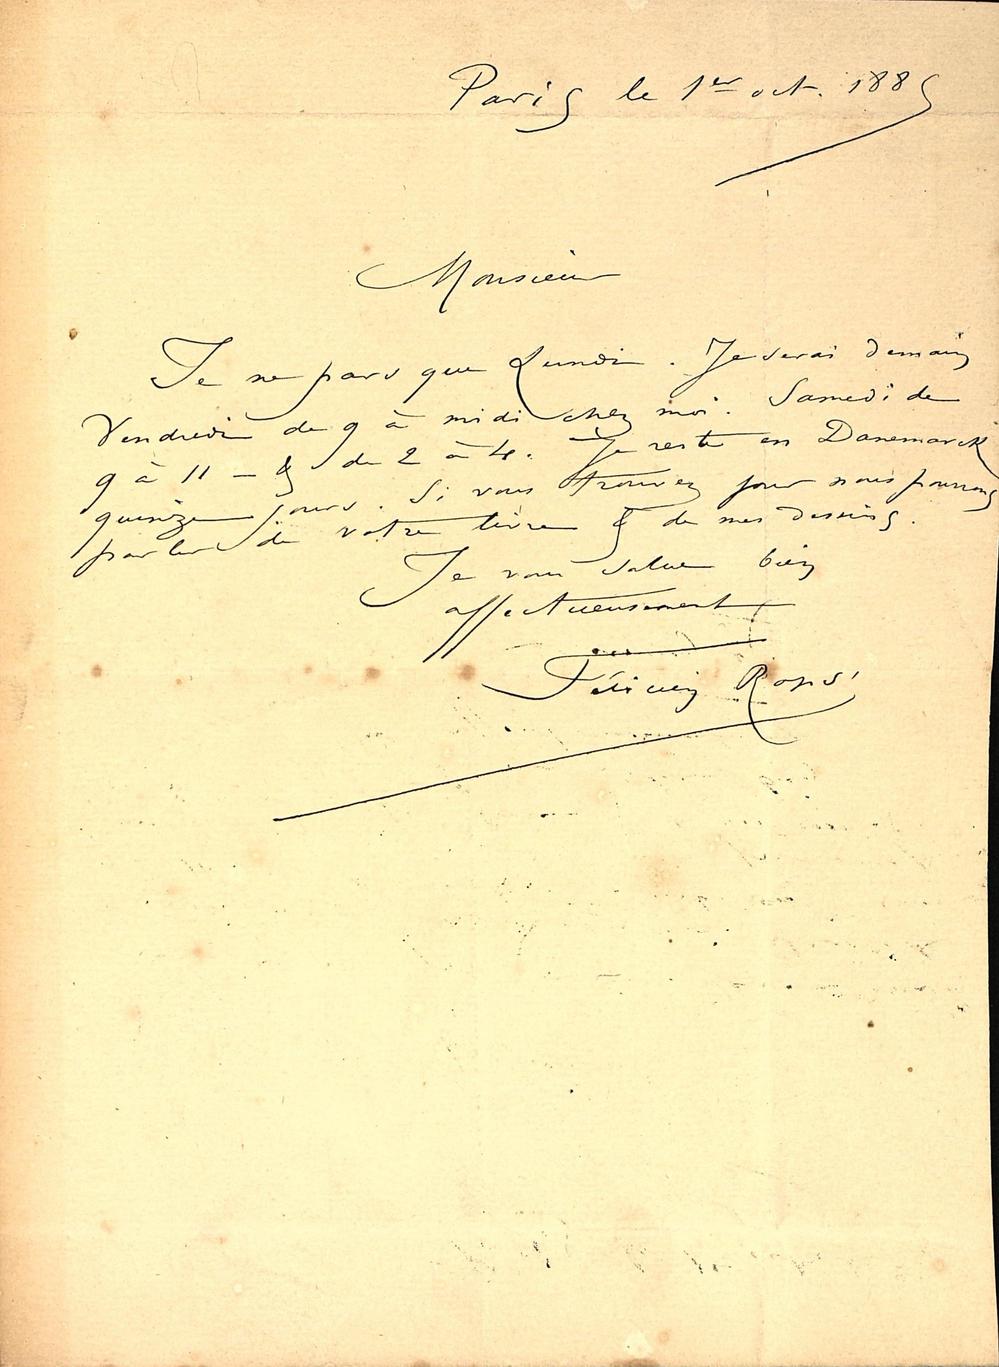 Paris le 1er oct. 1885
Monsieur
Je ne pars que Lundi. Je serai demain
Vendredi de 9 à midi chez moi. Samedi de
9 à 11 – & de 2 à 4. Je reste en Danemarck
quinze jours. Si vous trouvez jour nous pourrons
parler de votre livre & de mes dessins.
Je vous salue bien
affectueusement
Félicien Rops